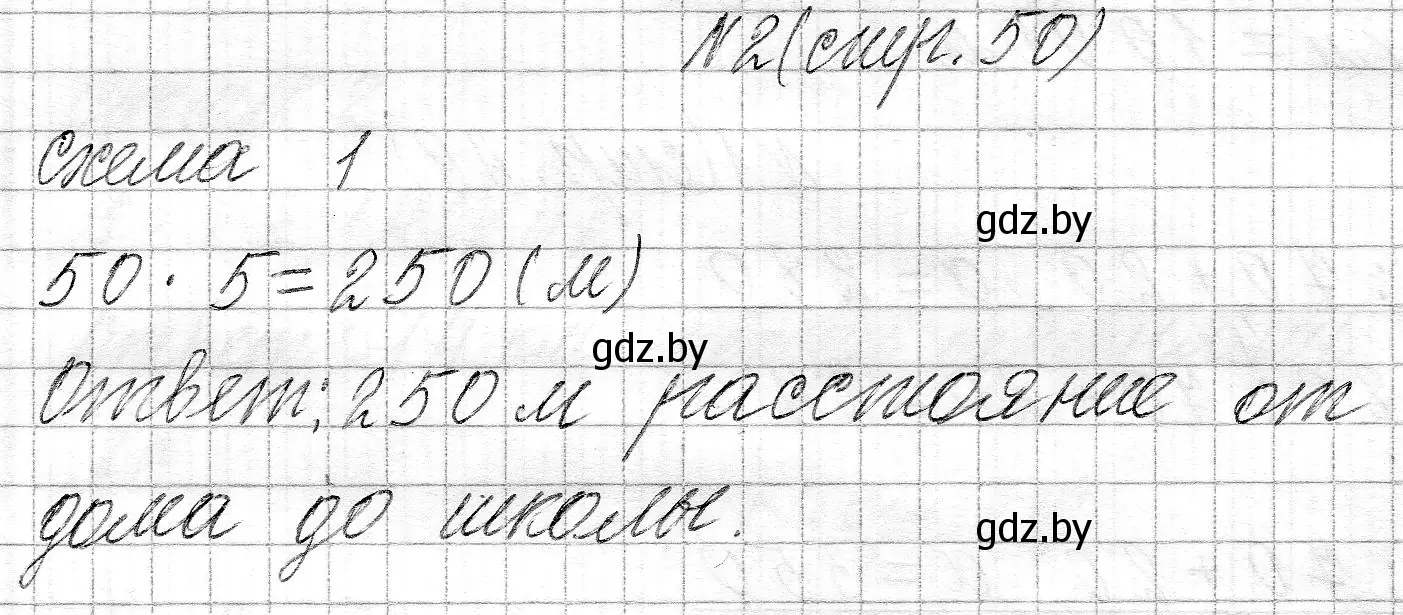 №2 (стр. 50)
Схема 1
gdz.by
50 · 5 = 250 (м)
gdz.by
Ответ: 250 м расстояние от
дома до школы.
gdz.by